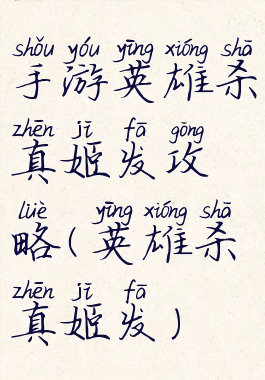 shǒu yóu yīng xióng shā
手游英雄杀
zhēn jī fā gōng
真姬发攻
lüè yīng xióng shā
略(英雄杀
zhēn jī fā
真姬发)